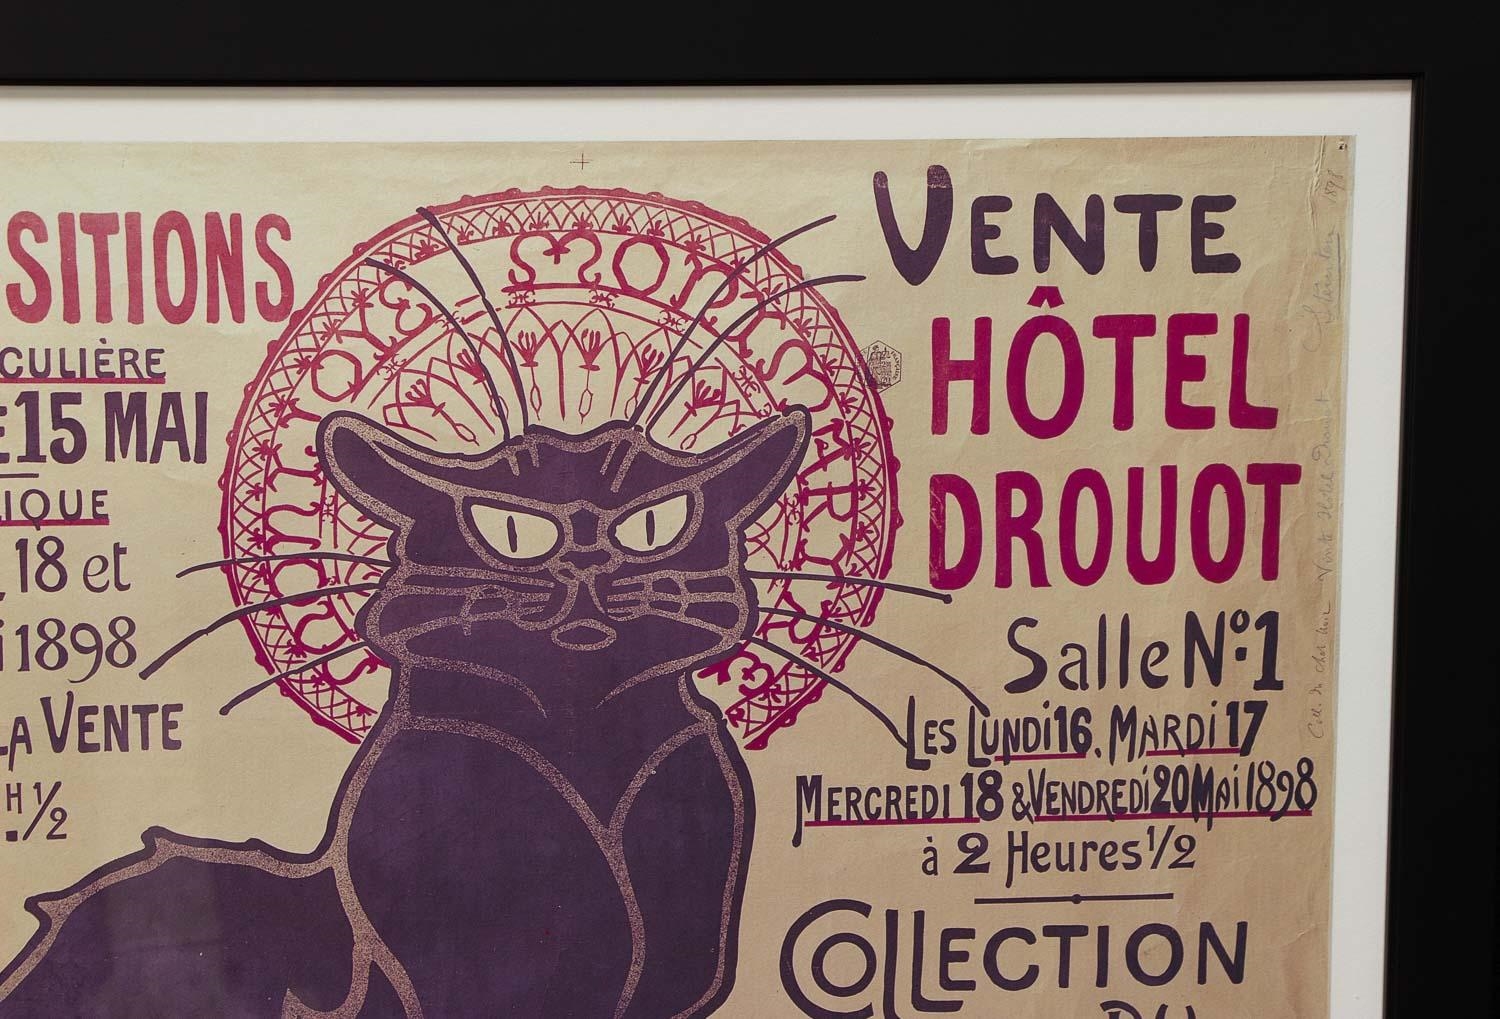 SITIONS
CULIÈRE
E 15 MAI
IQUE
18 et
i 1898
LA VENTE
H ½
MONTMARTRE
VENTE
HÔTEL
DROUOT
Salle No. 1
LES LUNDI 16. MARDI 17
MERCREDI 18 & VENDREDI 20 MAI 1898
à 2 Heures ½
COLLECTION
DU
Coll. du Chat Noir Vente Hotel Drouot Steinlen 1898